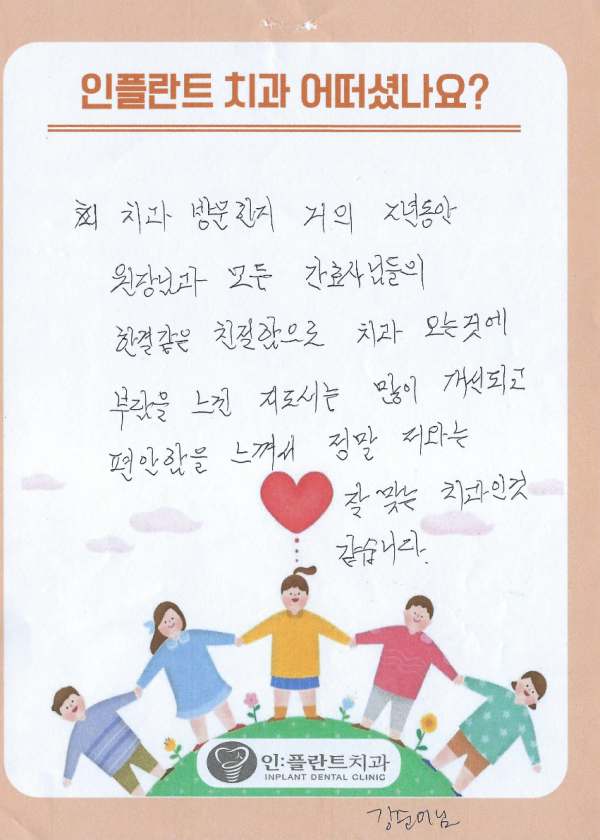 인플란트 치과 어떠셨나요?
치과 방문한지 거의 2년동안
원장님과 모든 간호사님들의
한결같은 친절함으로 치과 오는것에
부담을 느낀 저도서는 많이 개선되고
편안함을 느껴서 정말 저와는
잘 맞는 치과인것
같습니다.
인:플란트치과
INPLANT DENTAL CLINIC